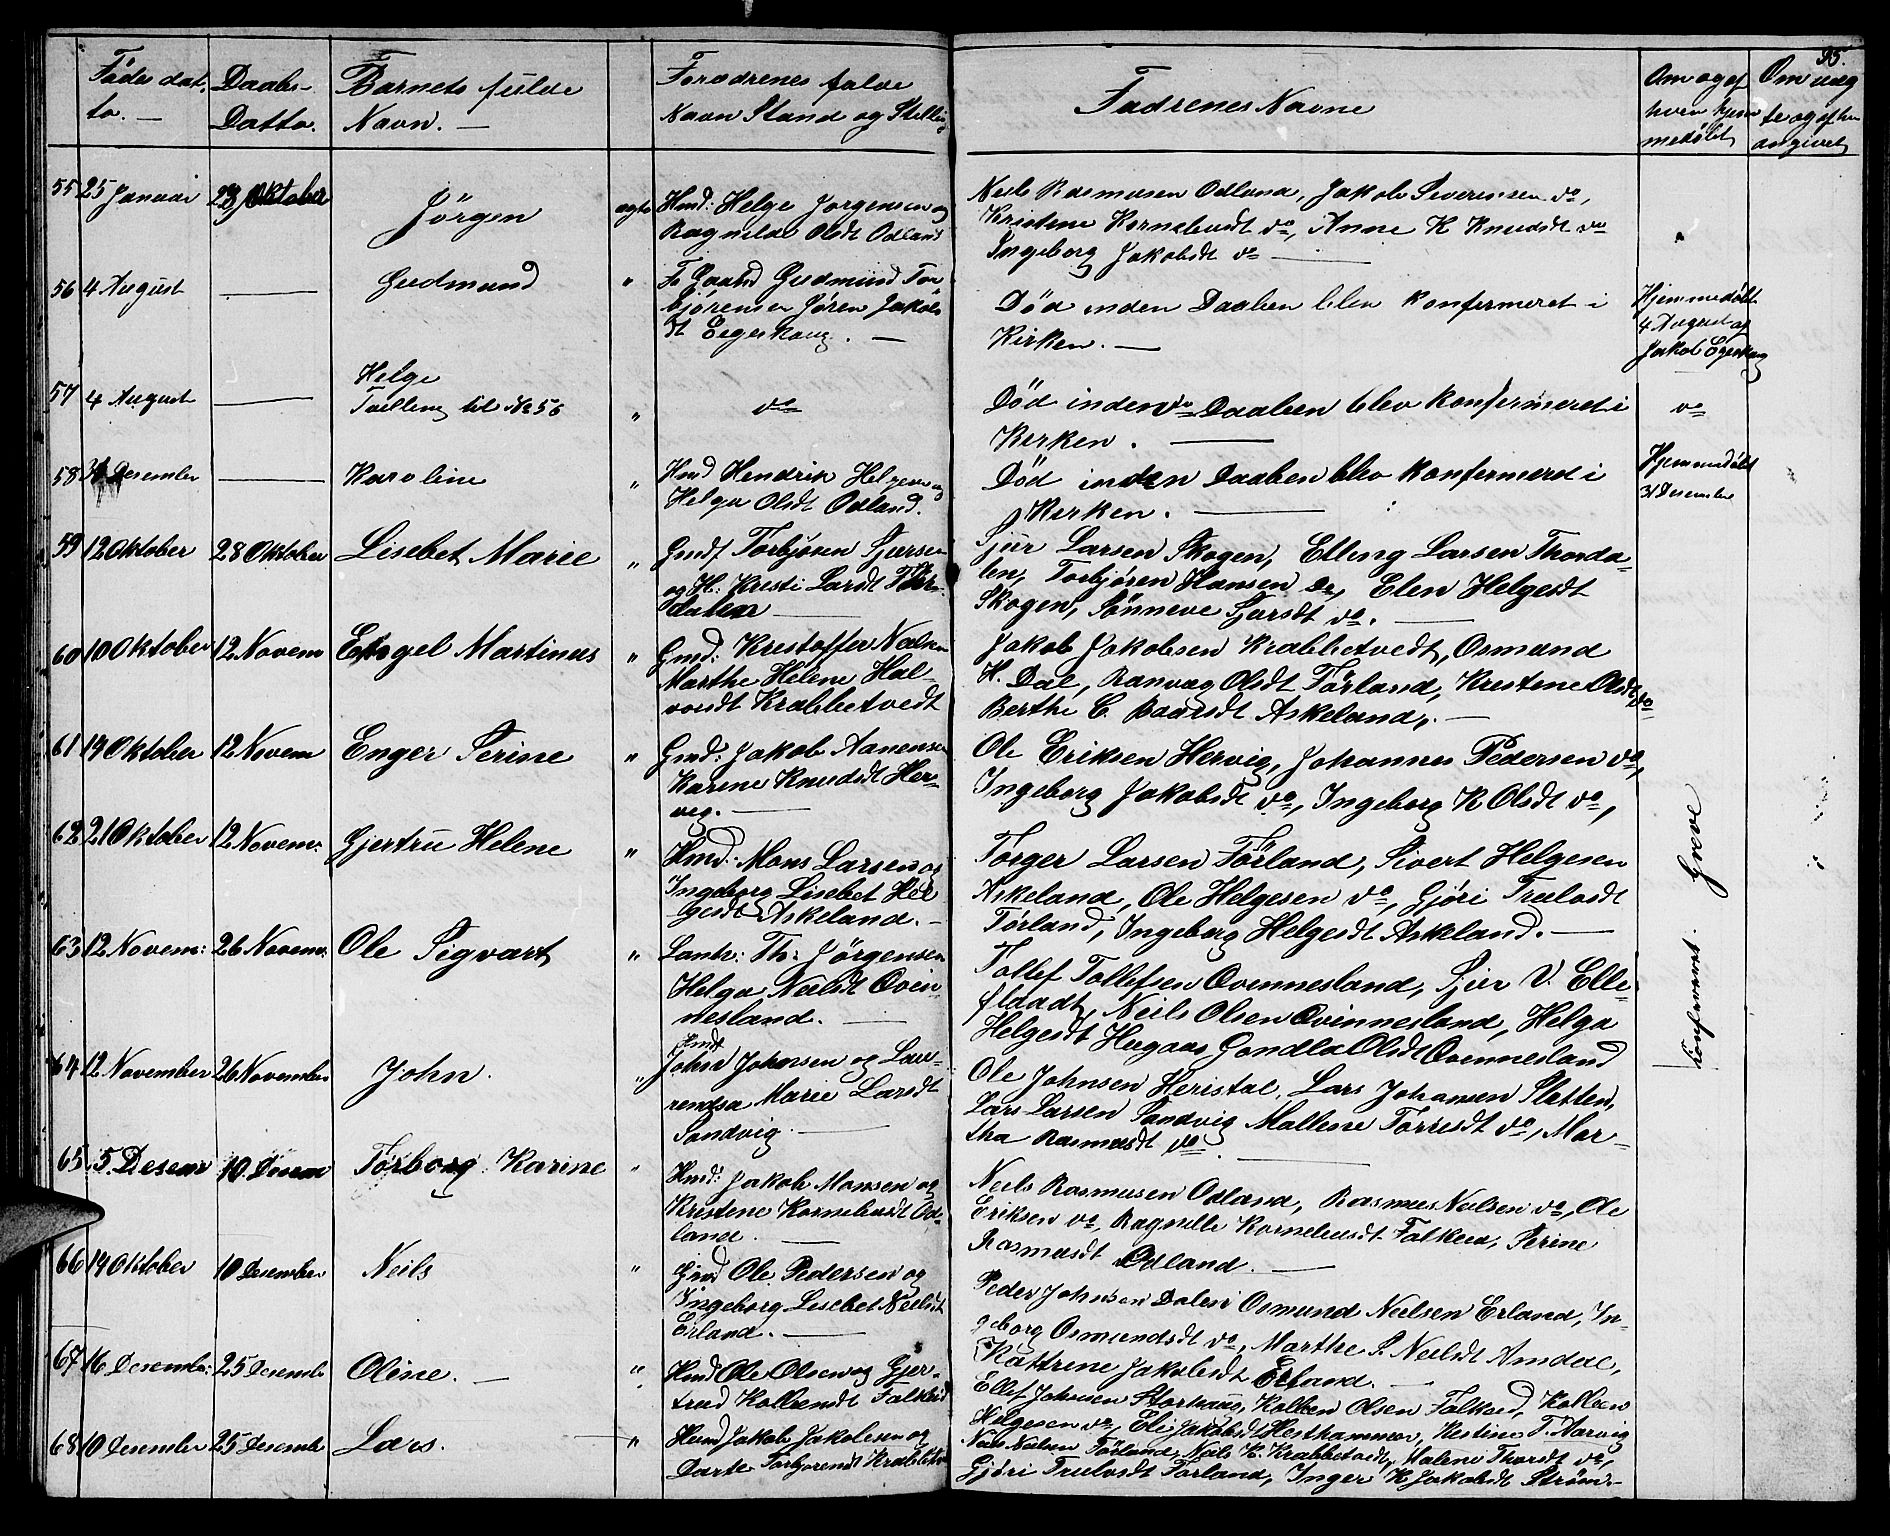 95.
Födes dat,
to. —
Daabs-
Datto.
Barnets fulde
Navn. —
Foroedrenes fulde
Navn Stand og Stelling
Fadrenes Navne
Om og af
hvem hjem
medöbt
Om vac
te og af hv
angivet
55 25 Januar
28 Oktober
Jörgen
ægte
Hmd: Helge Jorgensen og
Ragnilde Olsdt Odland
Neils Rasmusen Odland, Jakob Siverensen do,
Kristene Korneliusdt do, Anne K Knudsdt do
Ingeborg Jakobsdt do —
56 4 August
—
Gudmund
"
F. Gaard Gudmund Tor
björensen Jören Jakobs
dt Eegeskoug. —
Död inden Daaben blev konfermeret i
Kirken. —
Hjemmedöbt
4 August af
Jakob Egeskoug
57 4 August
—
Helge
Tvelling til No 56
"
do
Död inden do Daaben blev konfermeret i
Kirken. —
do
58 31 Desember
—
Karoline
"
Hmd Hendrik Helgesen og
Helga Olsdt Odland.
Död inden Daaben blev konfermerd i
Kirken. —
Hjemmedöbt
31 Desember
59 12 Oktober
28 Oktober
Lisebet Marie
"
Gmdf Torbjören Sjursen
og H: Kristi Larsdt Thor
dalen —
Sjur Larsen Skogen, Elling Larsen Thorda-
len, Torbjören Hansen do, Elen Helgesdt
Skogen, Sönneve Sjursdt do. —
60 10 Oktober
12 Novem
Engel Martinus
"
Gmd: Krestoffer Nælsen
Marthe Helene Hal-
vorsdt Krabbetvedt
Jakob Jakobsen Krabbetvedt, Osmund
H. Dal, Ranvag Olsdt Förland, Krestene Olsdt do
Berthe C. Baardsdt Askeland, —
61 19 Oktober
12 Novem
Enger Serine
"
Gmd: Jakob Aanensen
Karene Knudsdt Her-
vig. —
Ole Eriksen Hervig, Johannes Pedersen do,
Ingeborg Jakobsdt do, Ingeborg K Olsdt do,
62 21 Oktober
12 Novem:
Gjertru Helene
"
Hmd: Mons Larsen og
Ingeborg Lisebet Hel
gesdt Askeland. —
Torger Larsen Förland, Sivert Helgesen
Askeland, Ole Helgesen do, Gjöri Trulsdt
Förland, Ingeborg Helgesdt Askland. —
63 12 Novem:
26 Novem:
Ole Sigvart
"
Lanh: Th: Jörgensen
Helga Neilsdt Qvin-
nesland. —
Tollef Tollefsen Qvennesland, Sjur V. Elle-
flaadt, Neils Olsen Qvinnesland, Helga
Helgesdt Hugaas Gondla Olsdt Qvennesland
64 12 November
26 November
John.
"
Hmd
John Johnsen og Lau-
rendsa Marie Larsdt
Sandvig. —
Ole Johnsen Heristal, Lars Johansen Sletten,
Lars Larsen Sandvig Mallene Torresdt do, Mar-
tha Rasmusdt do —
65 5 Desemr
10 Desem
Torborg Karine
"
Hmd: Jakob Monsen og
Kristene Korneliusdt Od-
land. —
Neils Rasmusen Odland, Rasmus Neilsen do, Ole
Eriksen do, Ragnelle Korneliusdt Falkeid, Serine
Rasmusdt Odland. —
66 19 Oktober
10 Desember
Neils
"
Gmd Ole Pedersen og
Ingeborg Lesebet Neilsdt
Erland. —
Peder Johnsen Dalen Osmund Neilsen Erland, In-
geborg Osmundsdt do, Marthe S. Neilsdt Amdal,
Kattrene Jakobsdt Erland. —
67 16 Desember:
25 Desembe
Oline. —
"
Hmd Ole Olsen og Gjer-
trud Kolbensdt Falkeid
Ellef Johnsen Storhaug, Kolben Olsen Falkeid, Kolben
Helgesen do, Eli Jakobsdt Hesthammer, Kestine T. Aarvig
68 10 Desember
25 Desembe
Lars.
"
Hmd Jakob Jakobsen og
Dorte Torbjorensdt Krabbetve
Neils Neilsen Förland, Neils K. Krabbetvedt, Malene Thorsdt do,
Gjöri Trulsdt Förland, Inger K Jakobsdt Ström-
Konfermeret. Greve